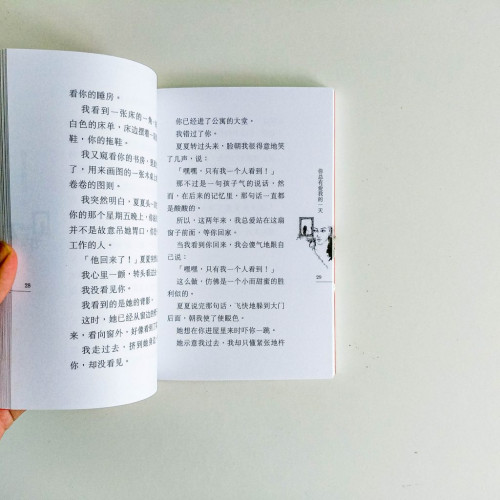 看你的睡房。
我看到一张床的一角
白色的床单，床边摆着一
鞋，你的拖鞋。
我又窥看你的书房，里
了，用来画图的一张木桌
卷卷的图则。
我突然明白，夏夏头一
你的那个星期五晚上，你
并不是故意吊她胃口，
工作的人。
「他回来了！」夏夏
我心里一颤，转头
我没看见你。
我看到的是她的背影。
这时，她已经从窗边
来，看向窗外，好像看到
我走过去，挤到她身边
你，却没看见。
28
你已经进了公寓的大堂。
我错过了你。
夏夏转过头来，脸朝我很得意地笑
了几声，说：
「嘿嘿，只有我一个人看到！」
那不过是一句孩子气的说话，然
而，在后来的记忆里，那句话一直都
是酸酸的。
所以，这两年来，我总爱站在这扇
窗子前面，等你回家。
当我看到你回来，我会傻气地跟自
己说：
「嘿嘿，只有我一个人看到！」
这么做，仿佛是一个小而甜蜜的胜
利似的。
夏夏说完那句话，飞快地躲到大门
后面，朝我使了使眼色。
她想在你进屋里来时吓你一跳。
她示意我过去，我却只懂紧张地杵
你总有爱我的一天
29